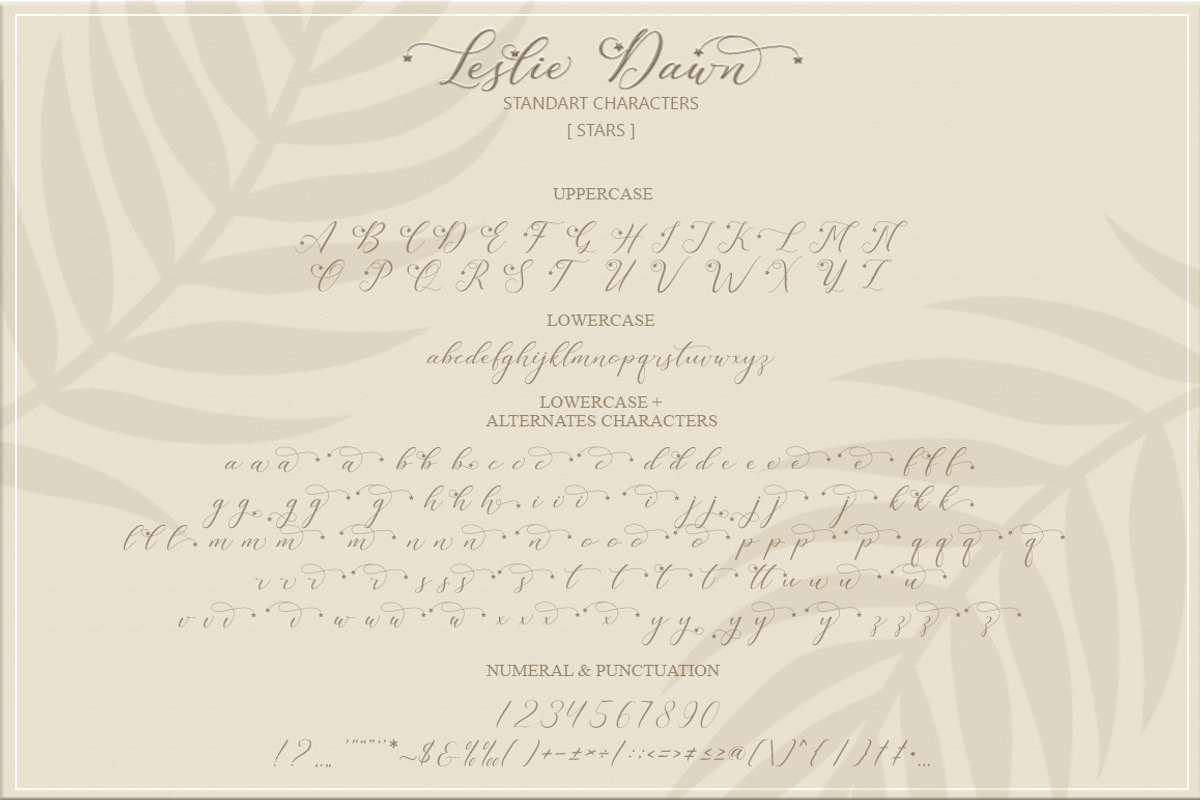 Leslie Dawn
STANDART CHARACTERS
[ STARS ]
UPPERCASE
A B C D E F G H I J K L M N
O P Q R S T U V W X Y Z
LOWERCASE
abcdefghijklmnopqrstuvwxyz
LOWERCASE +
ALTERNATES CHARACTERS
a a a a b b b c c c c d d d e e e e f f f
g g g g g h h h i i i i j j j j j k k k
l l l m m m m n n n n o o o o p p p p q q q q
r r r r s s s s t t t t tt u u u u
v v v v w w w w x x x x y y y y y z z z z
NUMERAL & PUNCTUATION
1 2 3 4 5 6 7 8 9 0
! ? . , . „ ' " “ ” ‘ ’ * ~ $ & % ‰ ( ) + − ± × ÷ / : ; < = > ≠ ≤ ≥ @ [ \ ] ^ { | } † ‡ • …